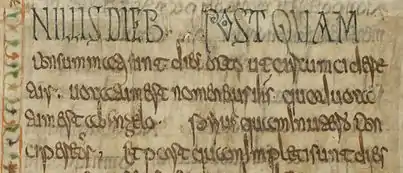 NILLIS DIEB. POST QUAM
consummati sunt dies octo ut circumcidere
tur. uocatum est nomen eius ihs quod uoca
tum est ab angelo. prius quam in utero con
ciperetur. et post quam impleti sunt dies